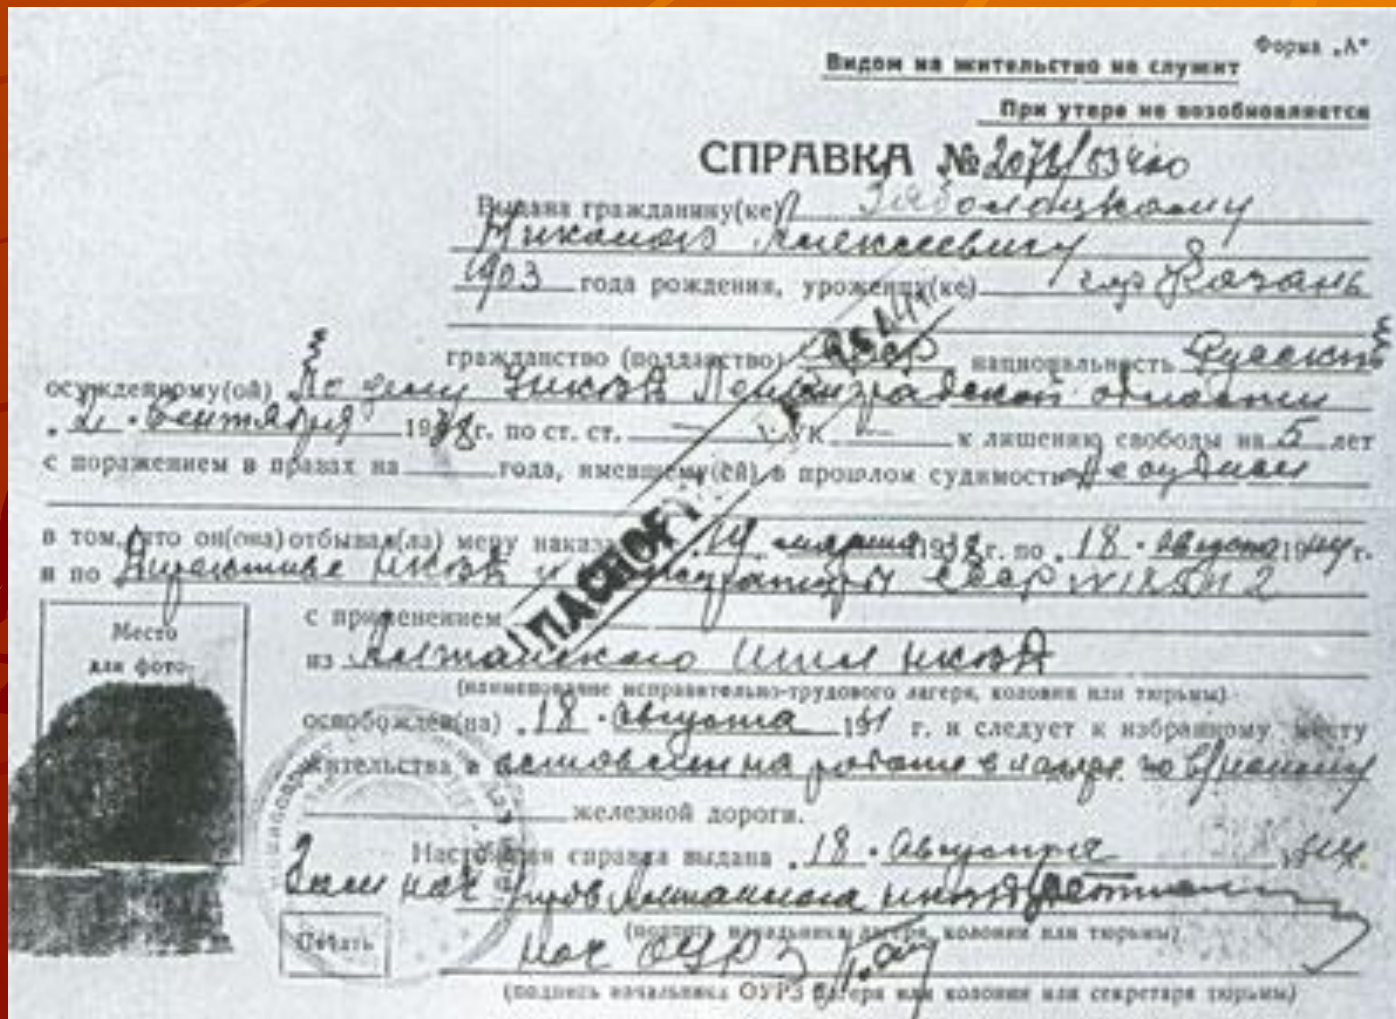 Форма „А"
Видом на жительство не служит
При утере не возобновляется
СПРАВКА №
Выдана гражданину(ке) Заболоцкому
Николаю Алексеевичу
1903 года рождения, уроженцу(ке) гор Казань
гражданство (подданство) СССР национальность Русский
осужденному(ой) По делу УНКВД Ленинградской области
„2" Сентября 1938 г. по ст. ст. — УК — к лишению свободы на 5 лет
с поражением в правах на года, имевшему(ей) в прошлом судимость Не судим
в том, что он(она) отбывал(ла) меру наказания 19 марта 1938 г. по „18" Августа 1944 г.
и по Директиве НКВД и Прокуратуры СССР №185
с применением
ПАСПОРТ
Место
для фото-
из Алтайского ИТЛ НКВД
(наименование исправительно-трудового лагеря, колонии или тюрьмы)
освобожден(на) „18" Августа 1944 г. и следует к избранному месту
жительства оставлен на работе в лагере по в/найму
железной дороги.
Настоящая справка выдана „18" Августа 1944.
Зам нач Алтайлага НКВД
(подпись начальника лагеря, колонии или тюрьмы)
Печать
Нач ОУРЗ
(подпись начальника ОУРЗ лагеря или колонии или секретаря тюрьмы)